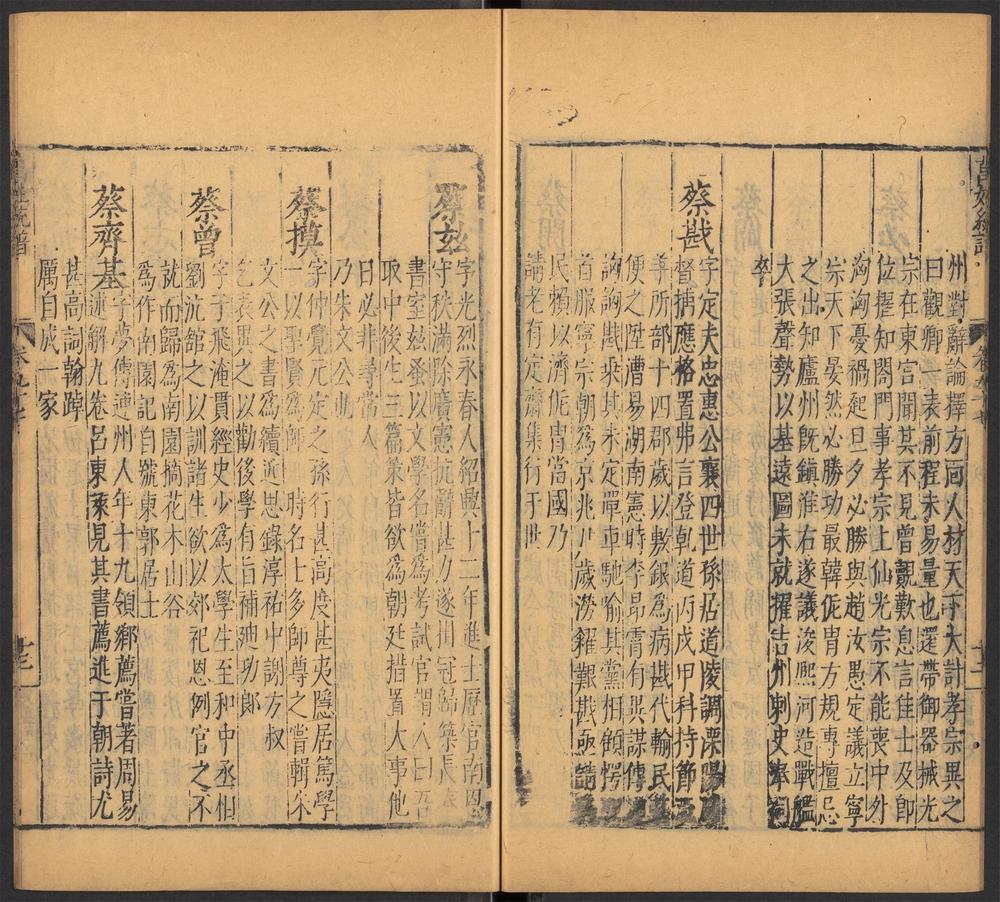 州對辭論擇方面人材天下大計孝宗異之
曰觀卿一表前程未易量也還帶御器械光
宗在東宮聞其不見曾覿歎息言佳士及即
位擢知閤門事孝宗上仙光宗不能喪中外
洶洶憂禍起旦夕必勝與趙汝愚定議立寧
宗天下晏然必勝功最韓侂冑方規專擅忌
之出知廬州既鎮淮右遂議浚熙河造戰艦
大張聲勢以基遠圖未就擢吉州刺史奉祠
卒
蔡戡
字定夫忠惠公襄四世孫居道陵調溧陽
督捕應格置弗言登乾道丙戌甲科持節五
尊所部十四郡歲以敷銀為病戡代輸民
便之陞漕易湖南憲時李昂霄有異謀傳
洶洶戡乘其未定單車馳喻其黨相顧愕
首服寧宗朝為京兆尹歲澇糴艱戡亟請
民賴以濟侂冑當國乃
請老有定齋集行于世
蔡玆
字光烈永春人紹興十二年進士歷官南恩
守秩滿除廣憲抗辭甚力遂掛冠歸築長
書室玆蚤以文學名嘗為考試官謂人曰吾
取中後生三篇策皆欲為朝廷措置大事他
日必非尋常人
乃朱文公也
蔡摸
字仲覺元定之孫行甚高度甚夷隱居篤學
一以聖賢為師一時名士多師尊之嘗輯朱
文公之書為續近思錄淳祐中謝方叔
乞表異之以勸後學有旨補廸功郎
蔡曾
字子飛淹貫經史少為太學生至和中丞相
劉沆館之以訓諸生欲以郊祀恩例官之不
就而歸為南園摘花木山谷
為作南園記自號東郭居士
蔡齊基
字夢傳連州人年十九領鄉薦嘗著周易
述解九卷呂東萊見其書薦進于朝詩尤
甚高詞翰踔
厲自成一家